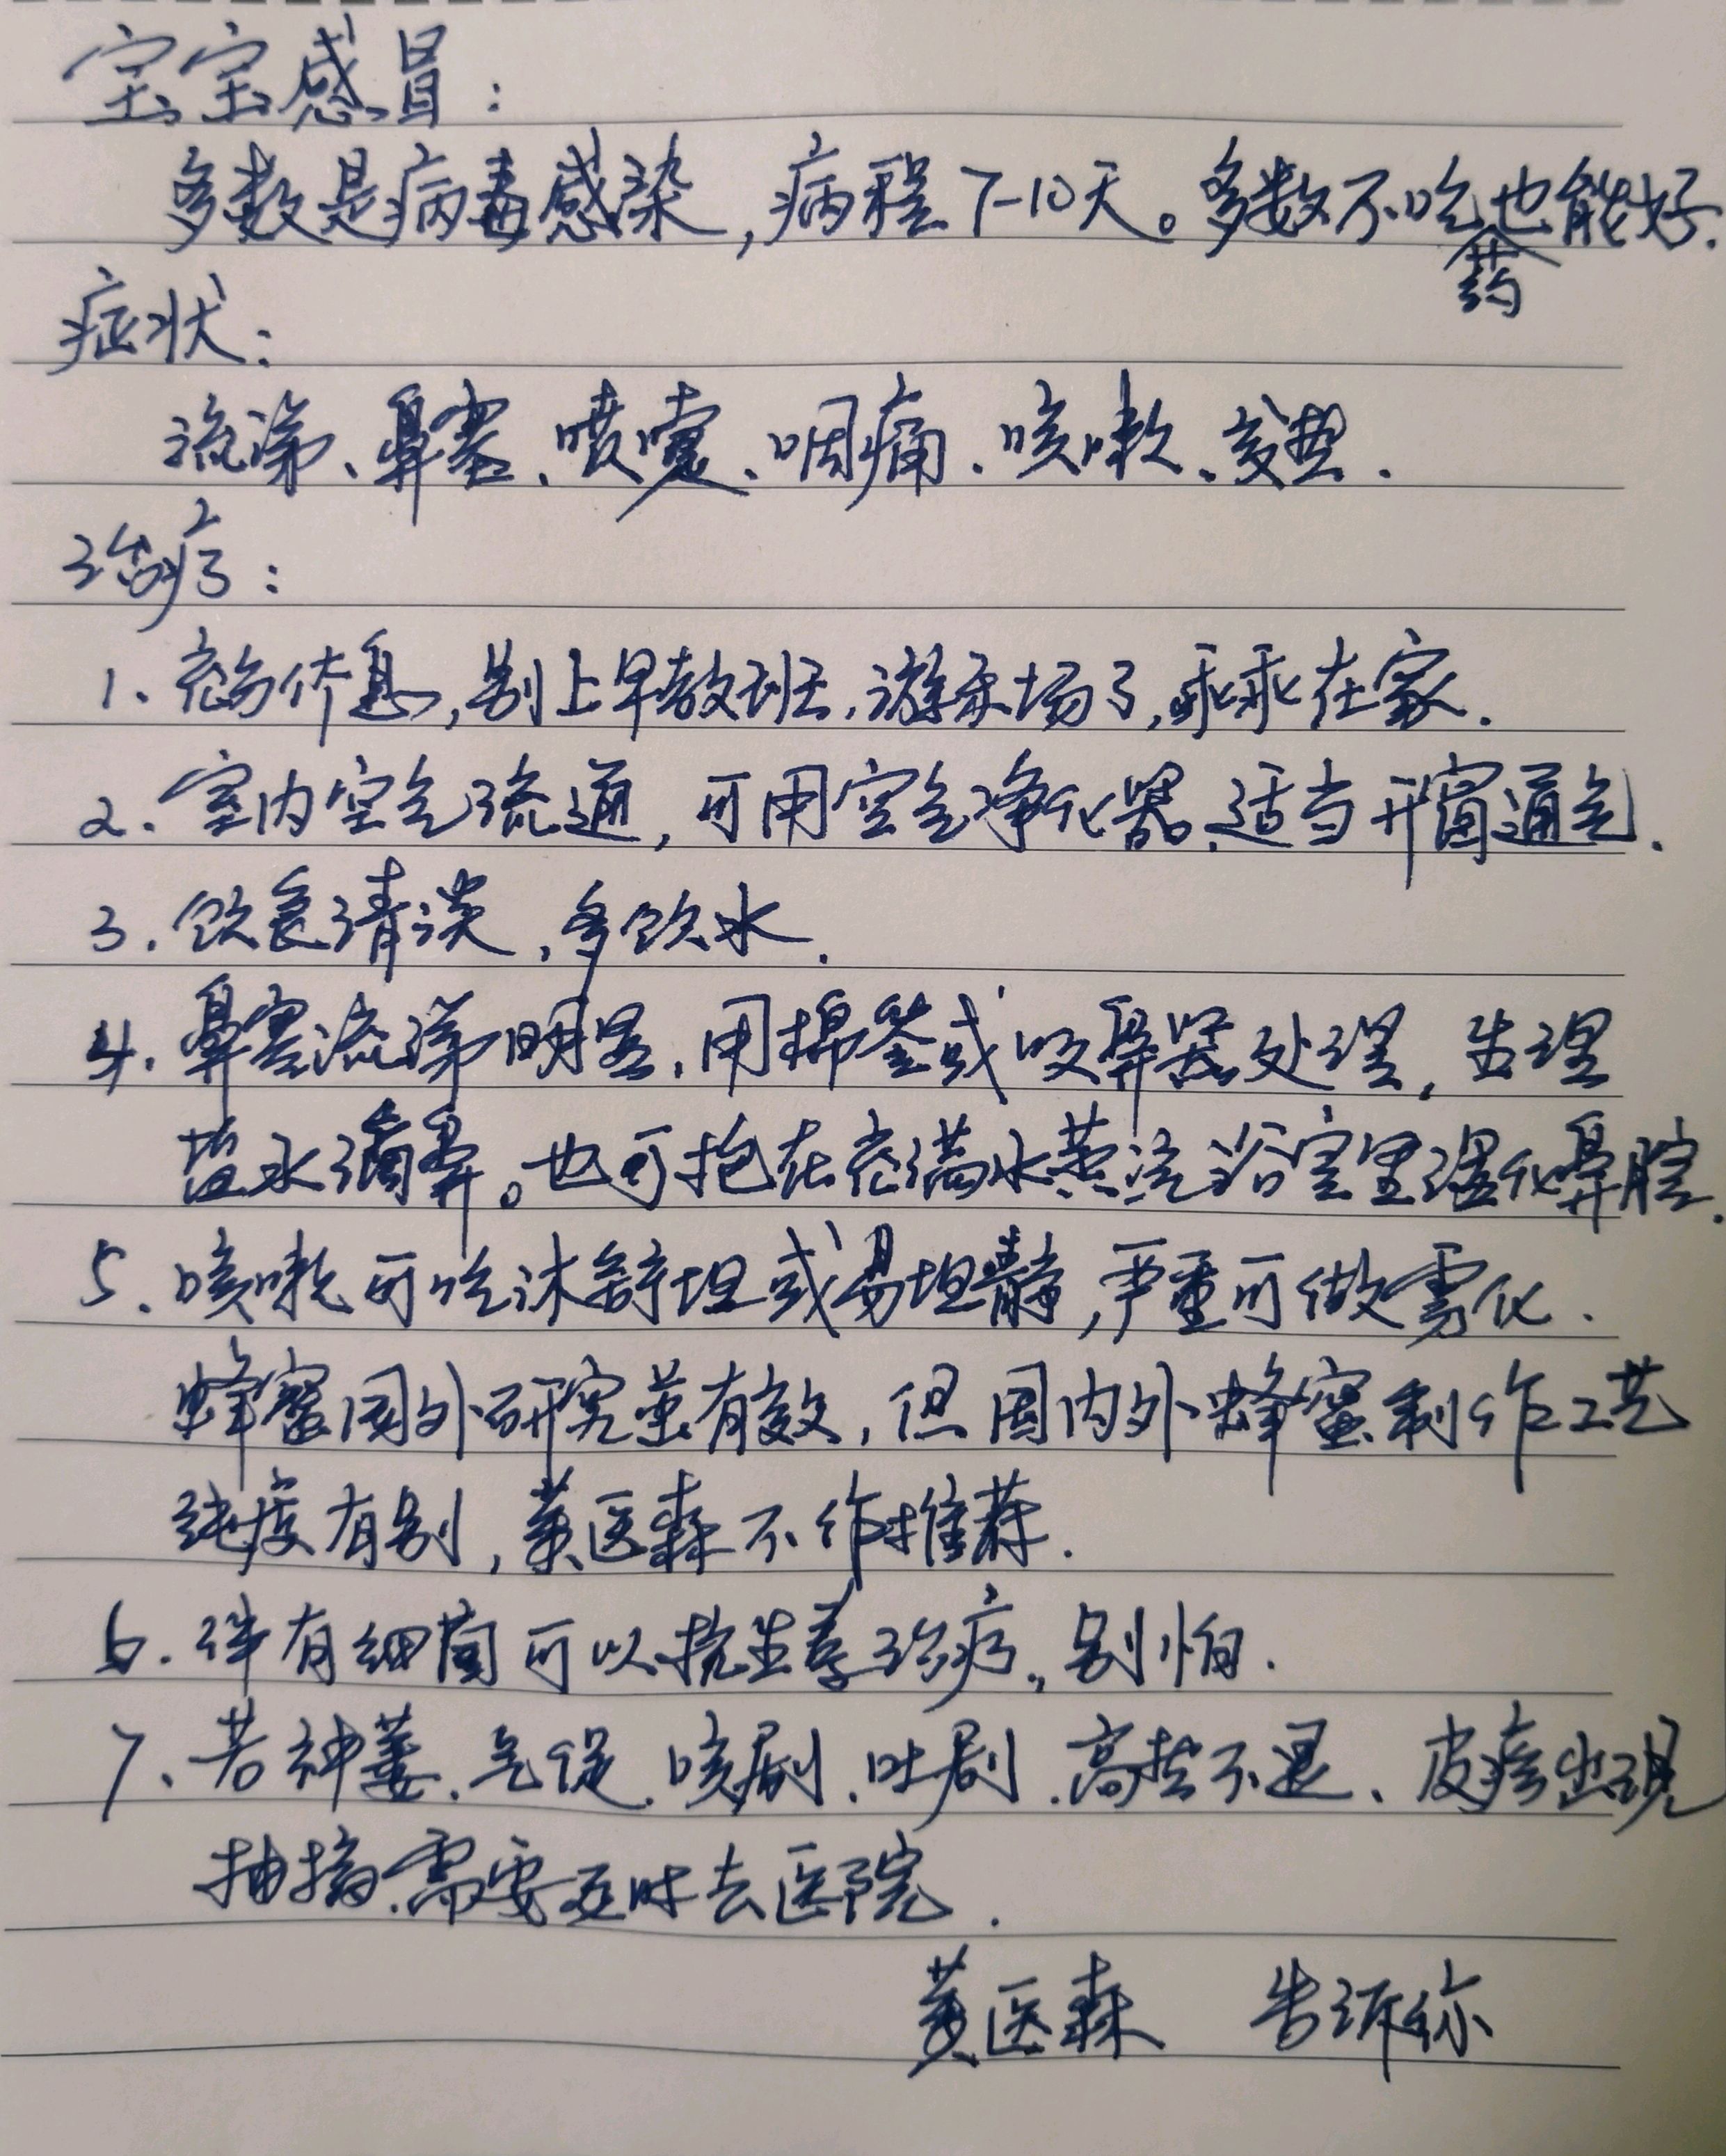 宝宝感冒：
多数是病毒感染，病程7-10天。多数不吃药也能好.
症状：
流涕、鼻塞、喷嚏、咽痛、咳嗽、发热.
治疗：
1、充分休息，别上早教班，游乐场了，乖乖在家.
2、室内空气流通，可用空气净化器，适当开窗通气.
3.饮食清淡，多饮水.
4.鼻塞流涕明显，用棉签或吸鼻器处理，生理
盐水滴鼻。也可抱在充满水蒸汽浴室里湿化鼻腔.
5.咳嗽可吃沐舒坦或易坦静，严重可做雾化.
蜂蜜国外研究虽有效，但国内外蜂蜜制作工艺
纯度有别，黄医森不作推荐.
6.伴有细菌可以抗生素治疗，别怕.
7、若神萎、气促、咳剧、吐剧、高热不退、皮疹出现
抽搐、需要及时去医院.
黄医森 告诉你